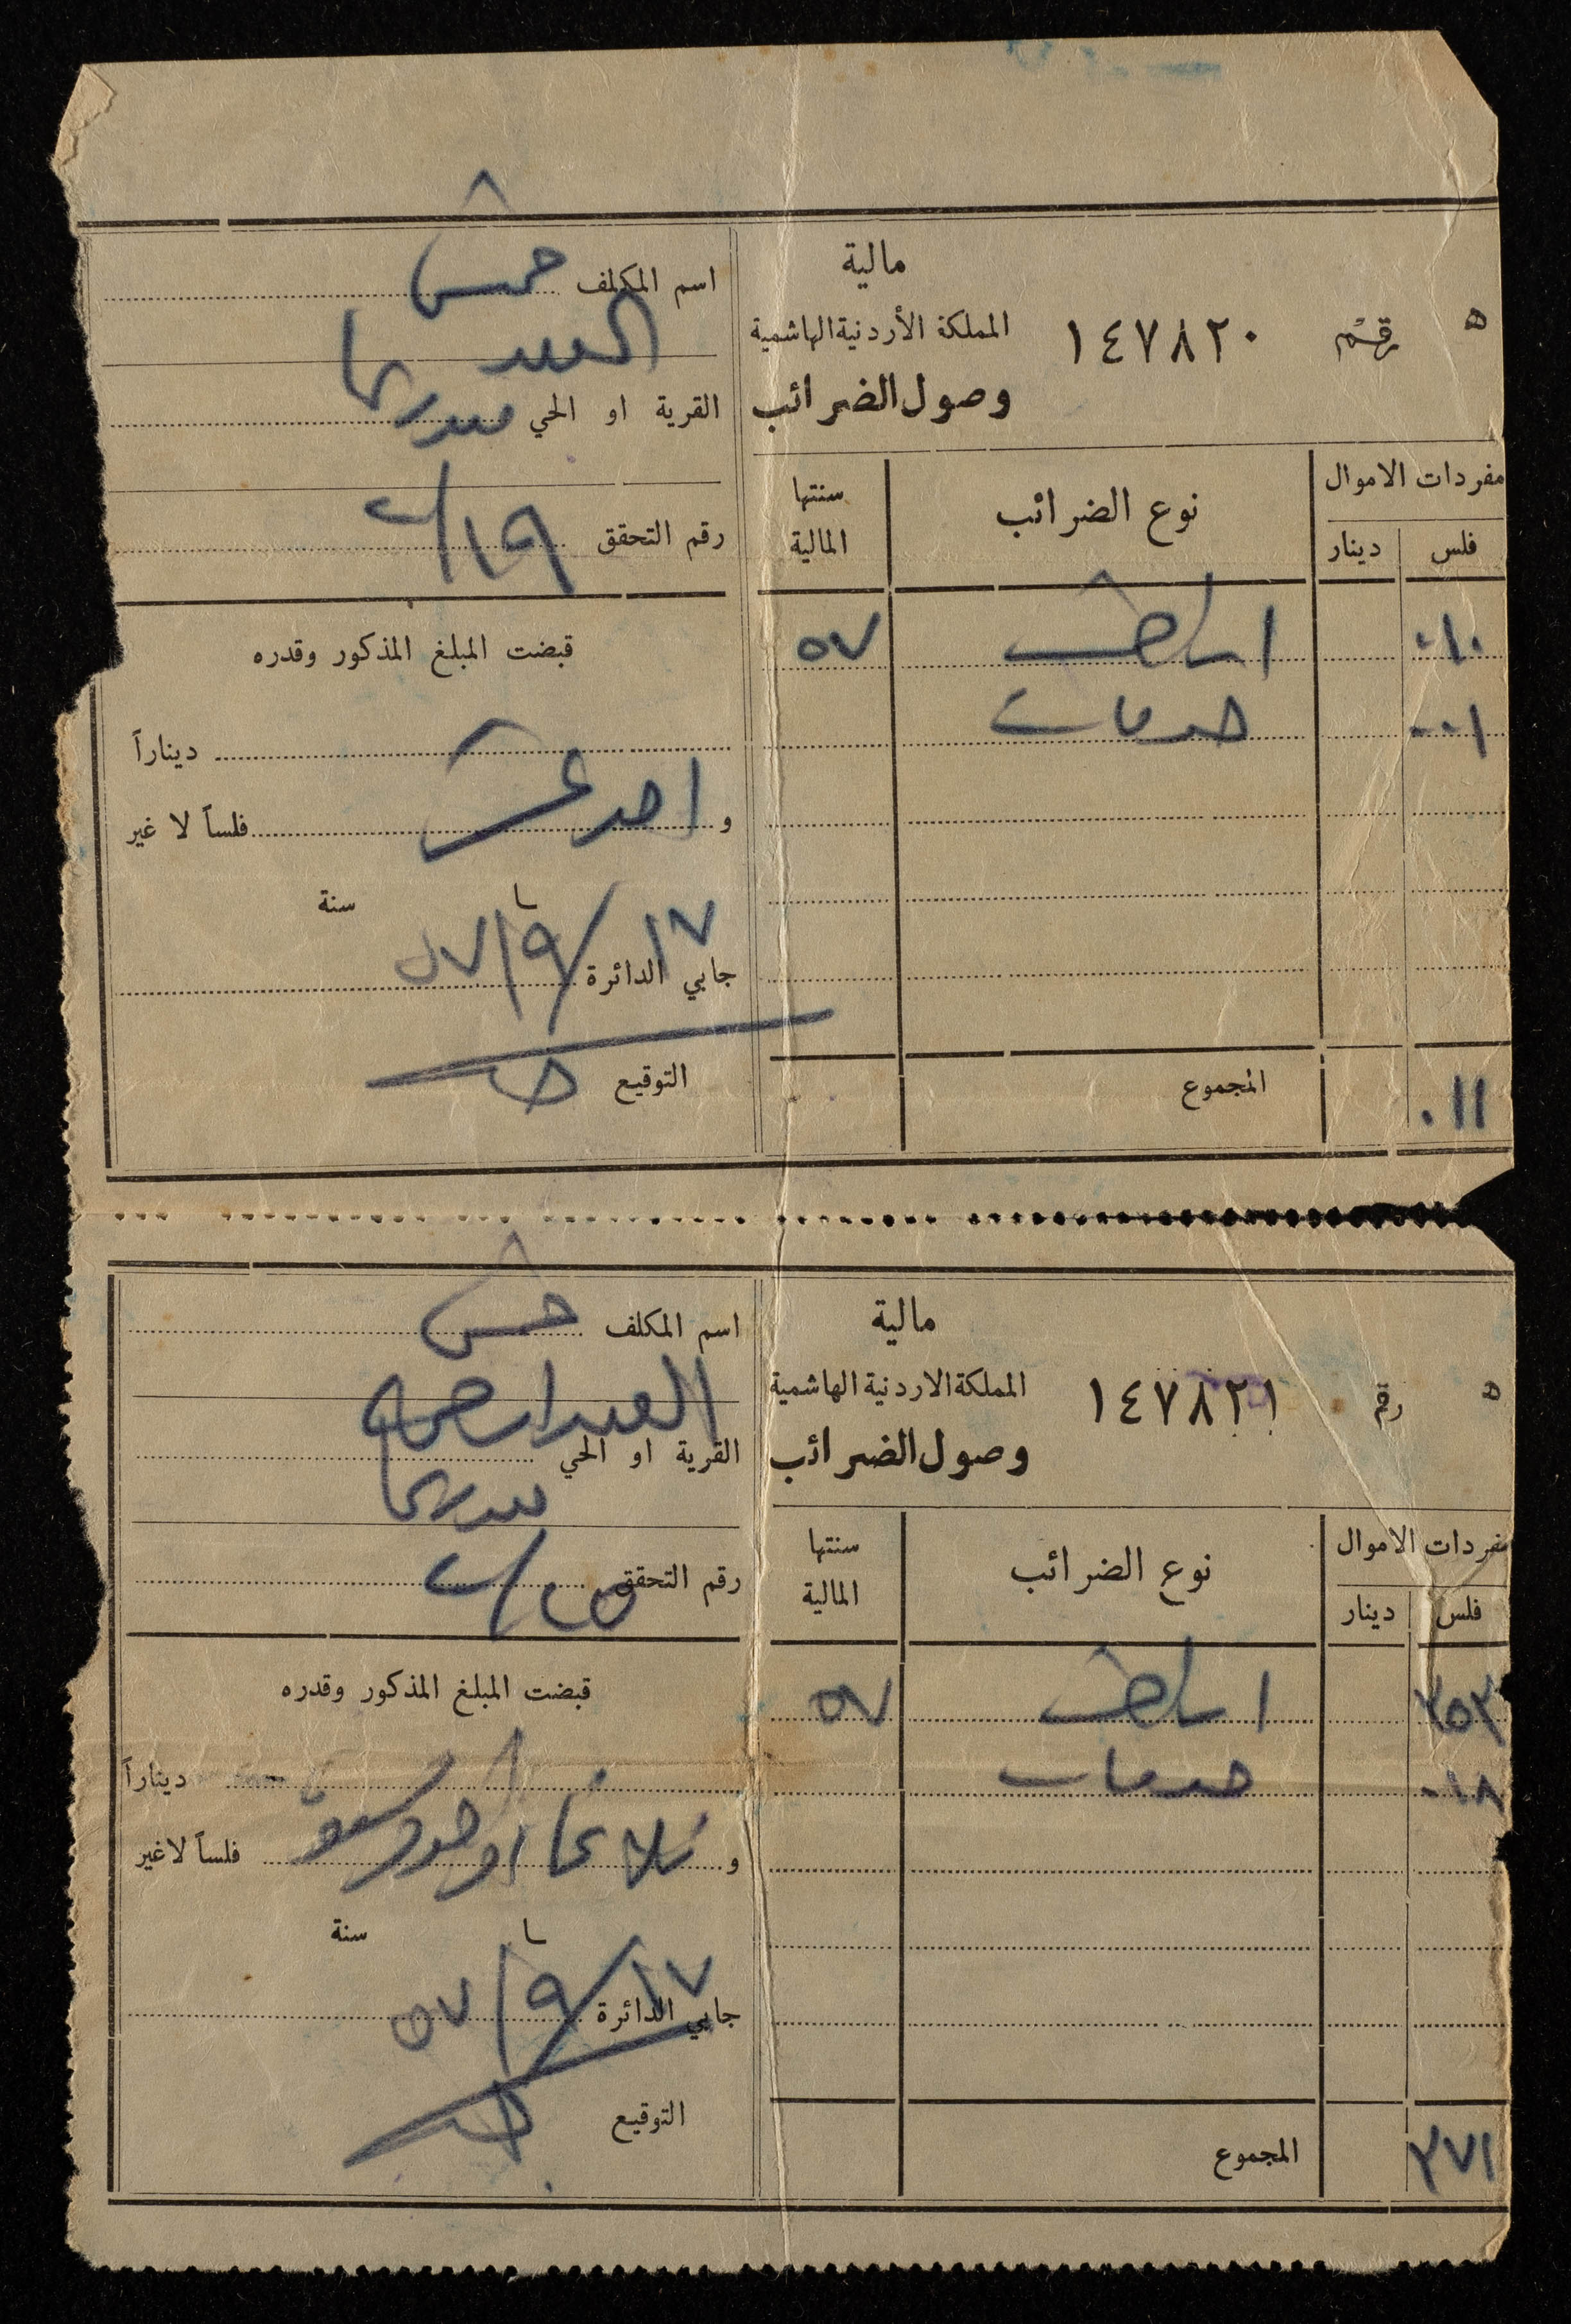 ه رقم ١٤٧٨٢٠
مالية
المملكة الأردنية الهاشمية
وصول الضرائب
مفردات الاموال
فلس دينار
نوع الضرائب
سنتها
المالية
٠١٠ اراضي ٥٧
٠٠١ خدمات
المجموع
٠١١
اسم المكلف حسن
العبد
القرية او الحي
رقم التحقق ١٩/
قبضت المبلغ المذكور وقدره
ديناراً
و احد عشر فلساً لا غير
سنة
١٧/٩/٥٧
جابي الدائرة
التوقيع
ه رقم ١٤٧٨٢١
مالية
المملكة الاردنية الهاشمية
وصول الضرائب
مفردات الاموال
فلس دينار
نوع الضرائب
سنتها
المالية
٣٥٣ اراضي ٥٧
٠١٨ خدمات
المجموع
٣٧١
اسم المكلف حسن
القرية او الحي
رقم التحقق
قبضت المبلغ المذكور وقدره
ديناراً
و فلساً لا غير
سنة
١٧/٩/٥٧
جابي الدائرة
التوقيع